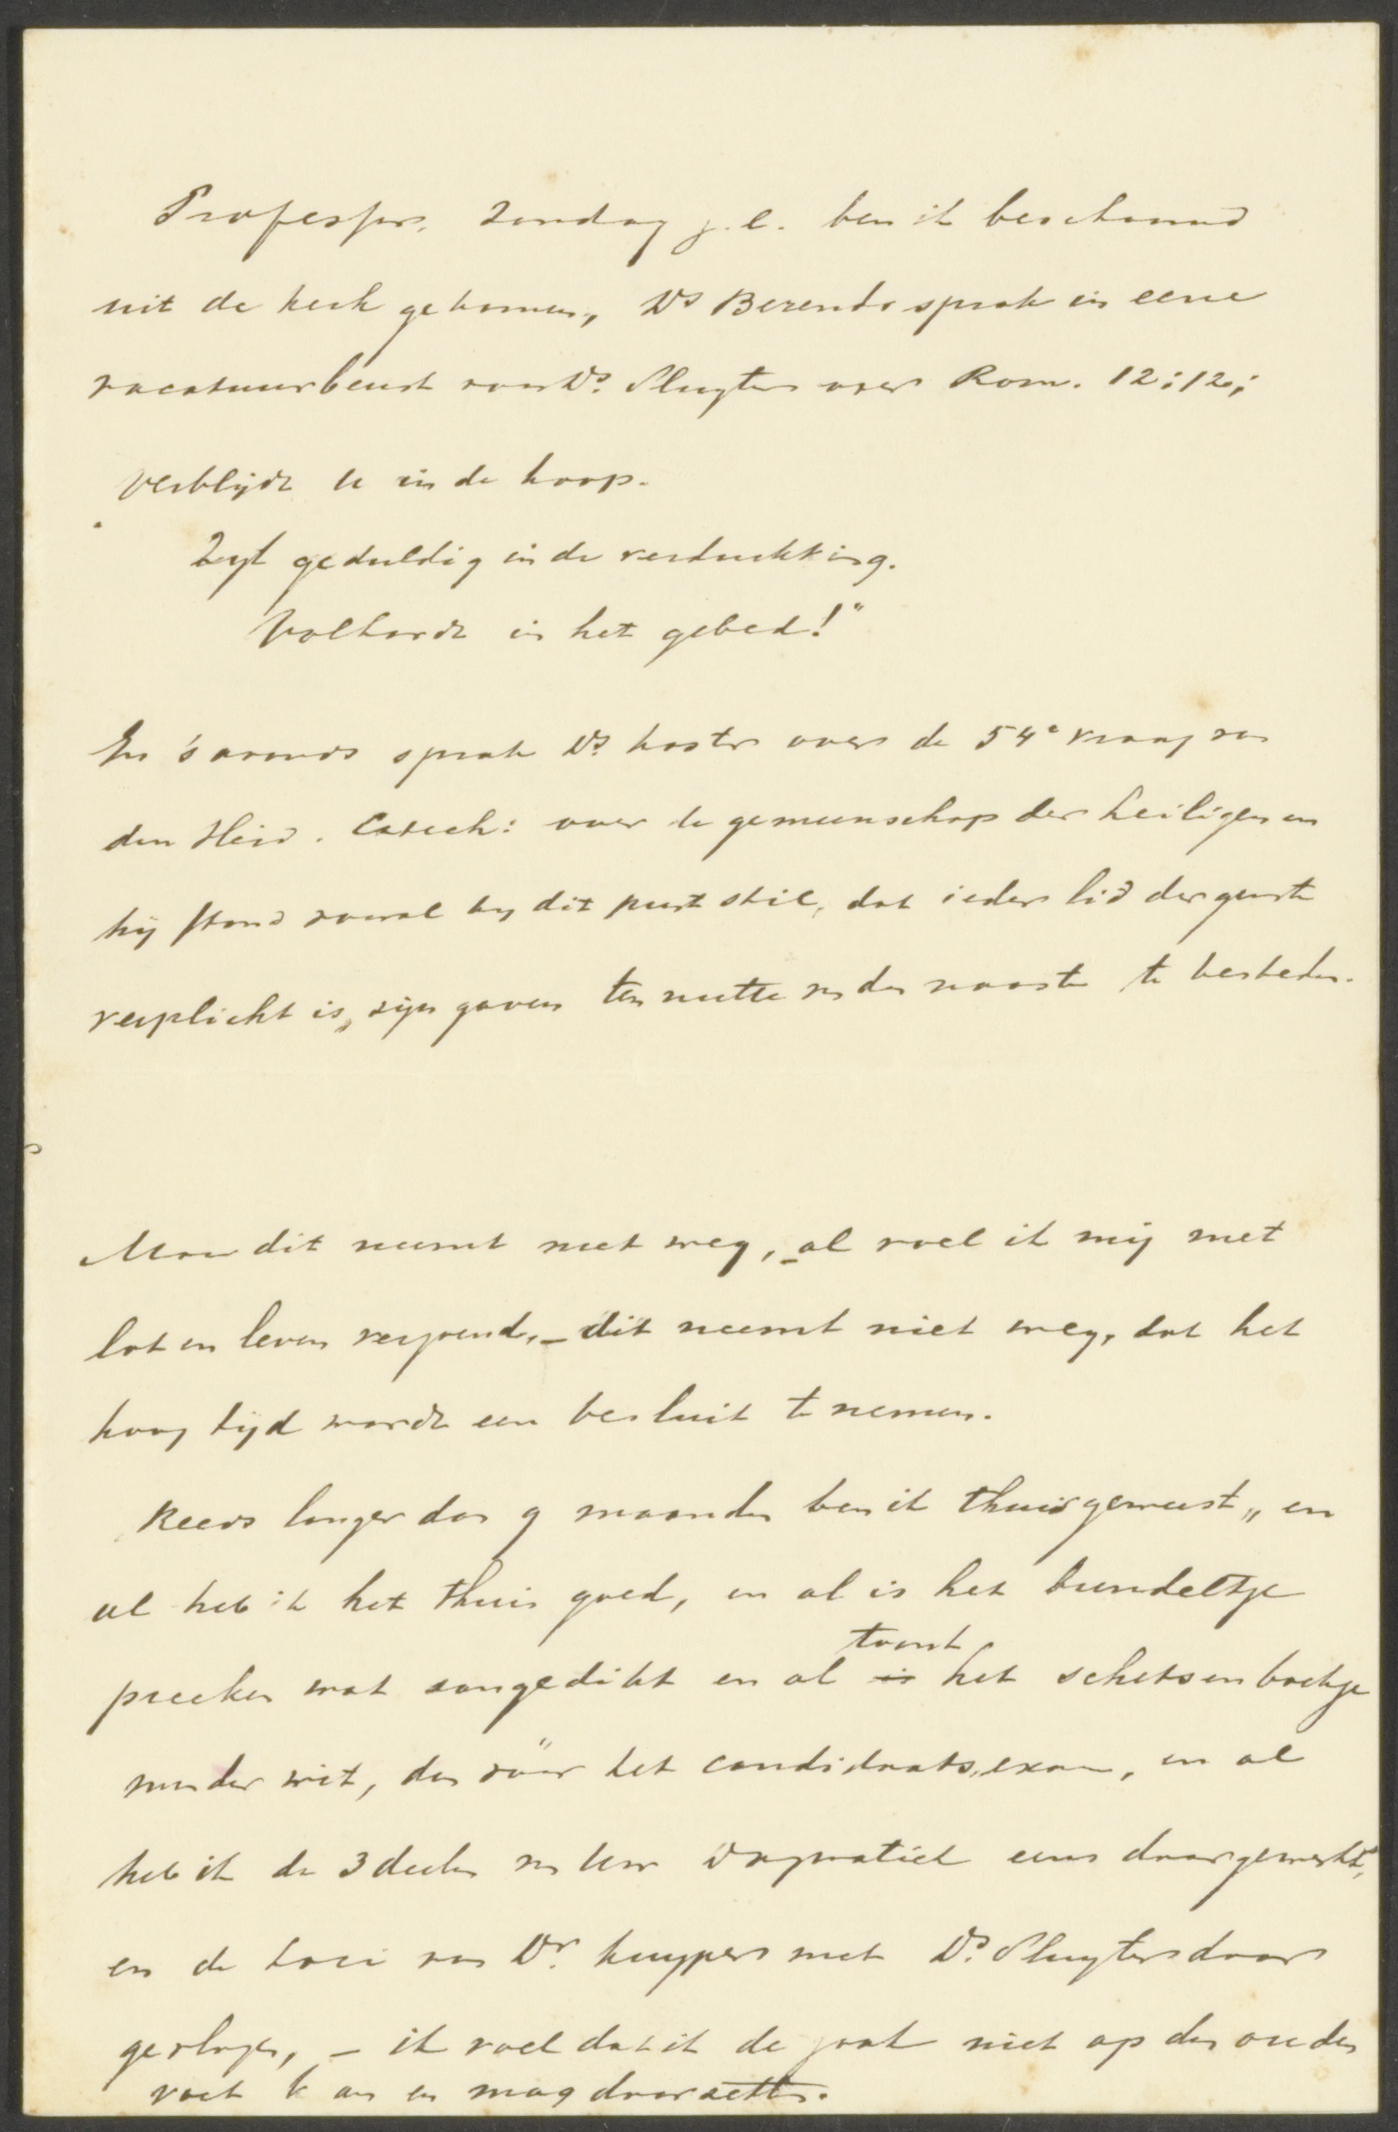 Professor, Zondag j.l. ben ik beschaamd
uit de kerk gekomen, Ds Berends sprak in eene
vacatuurbeurt voor Ds. Sluyters over Rom. 12:12;
„Verblijdt u in de hoop.
Zijt geduldig in de verdrukking.
Volhardt in het gebed!"
En 's avonds sprak Ds. Koster over de 54e vraag van
den Heid. Catech: over de gemeenschap der heiligen en
hij stond vooral by dit punt stil, dat ieder lid der gemte
verplicht is, zijn gaven ten nutte van den naaste te besteden.
Maar dit neemt niet weg, - al voel ik mij met
lot en leven verzoend, - dit neemt niet weg, dat het
hoog tijd wordt een besluit te nemen.
Reeds langer dan 9 maanden ben ik thuis geweest, en
al heb ik het thuis goed, en al is het bundeltje
preeken wat aangedikt en al is toont het schetsenboekje
minder wit, dan vóór het candidaats-exam, en al
heb ik de 3 deelen van Uw Dogmatiek eens doorgewerkt,
en de Loci van Dr. Kuyper met Ds. Sluyters door
geslagen, - ik voel dat ik de zaak niet op den ouden
voet kan en mag doorzetten.